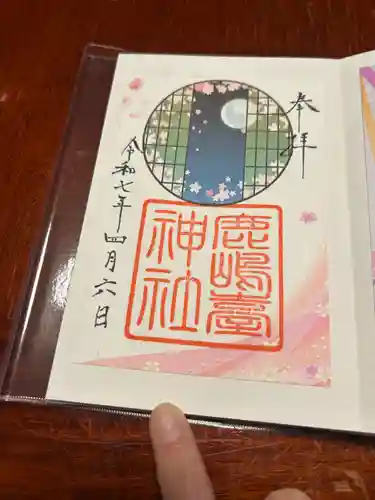 奉拝
鹿嶋臺
神社
令和七年四月六日